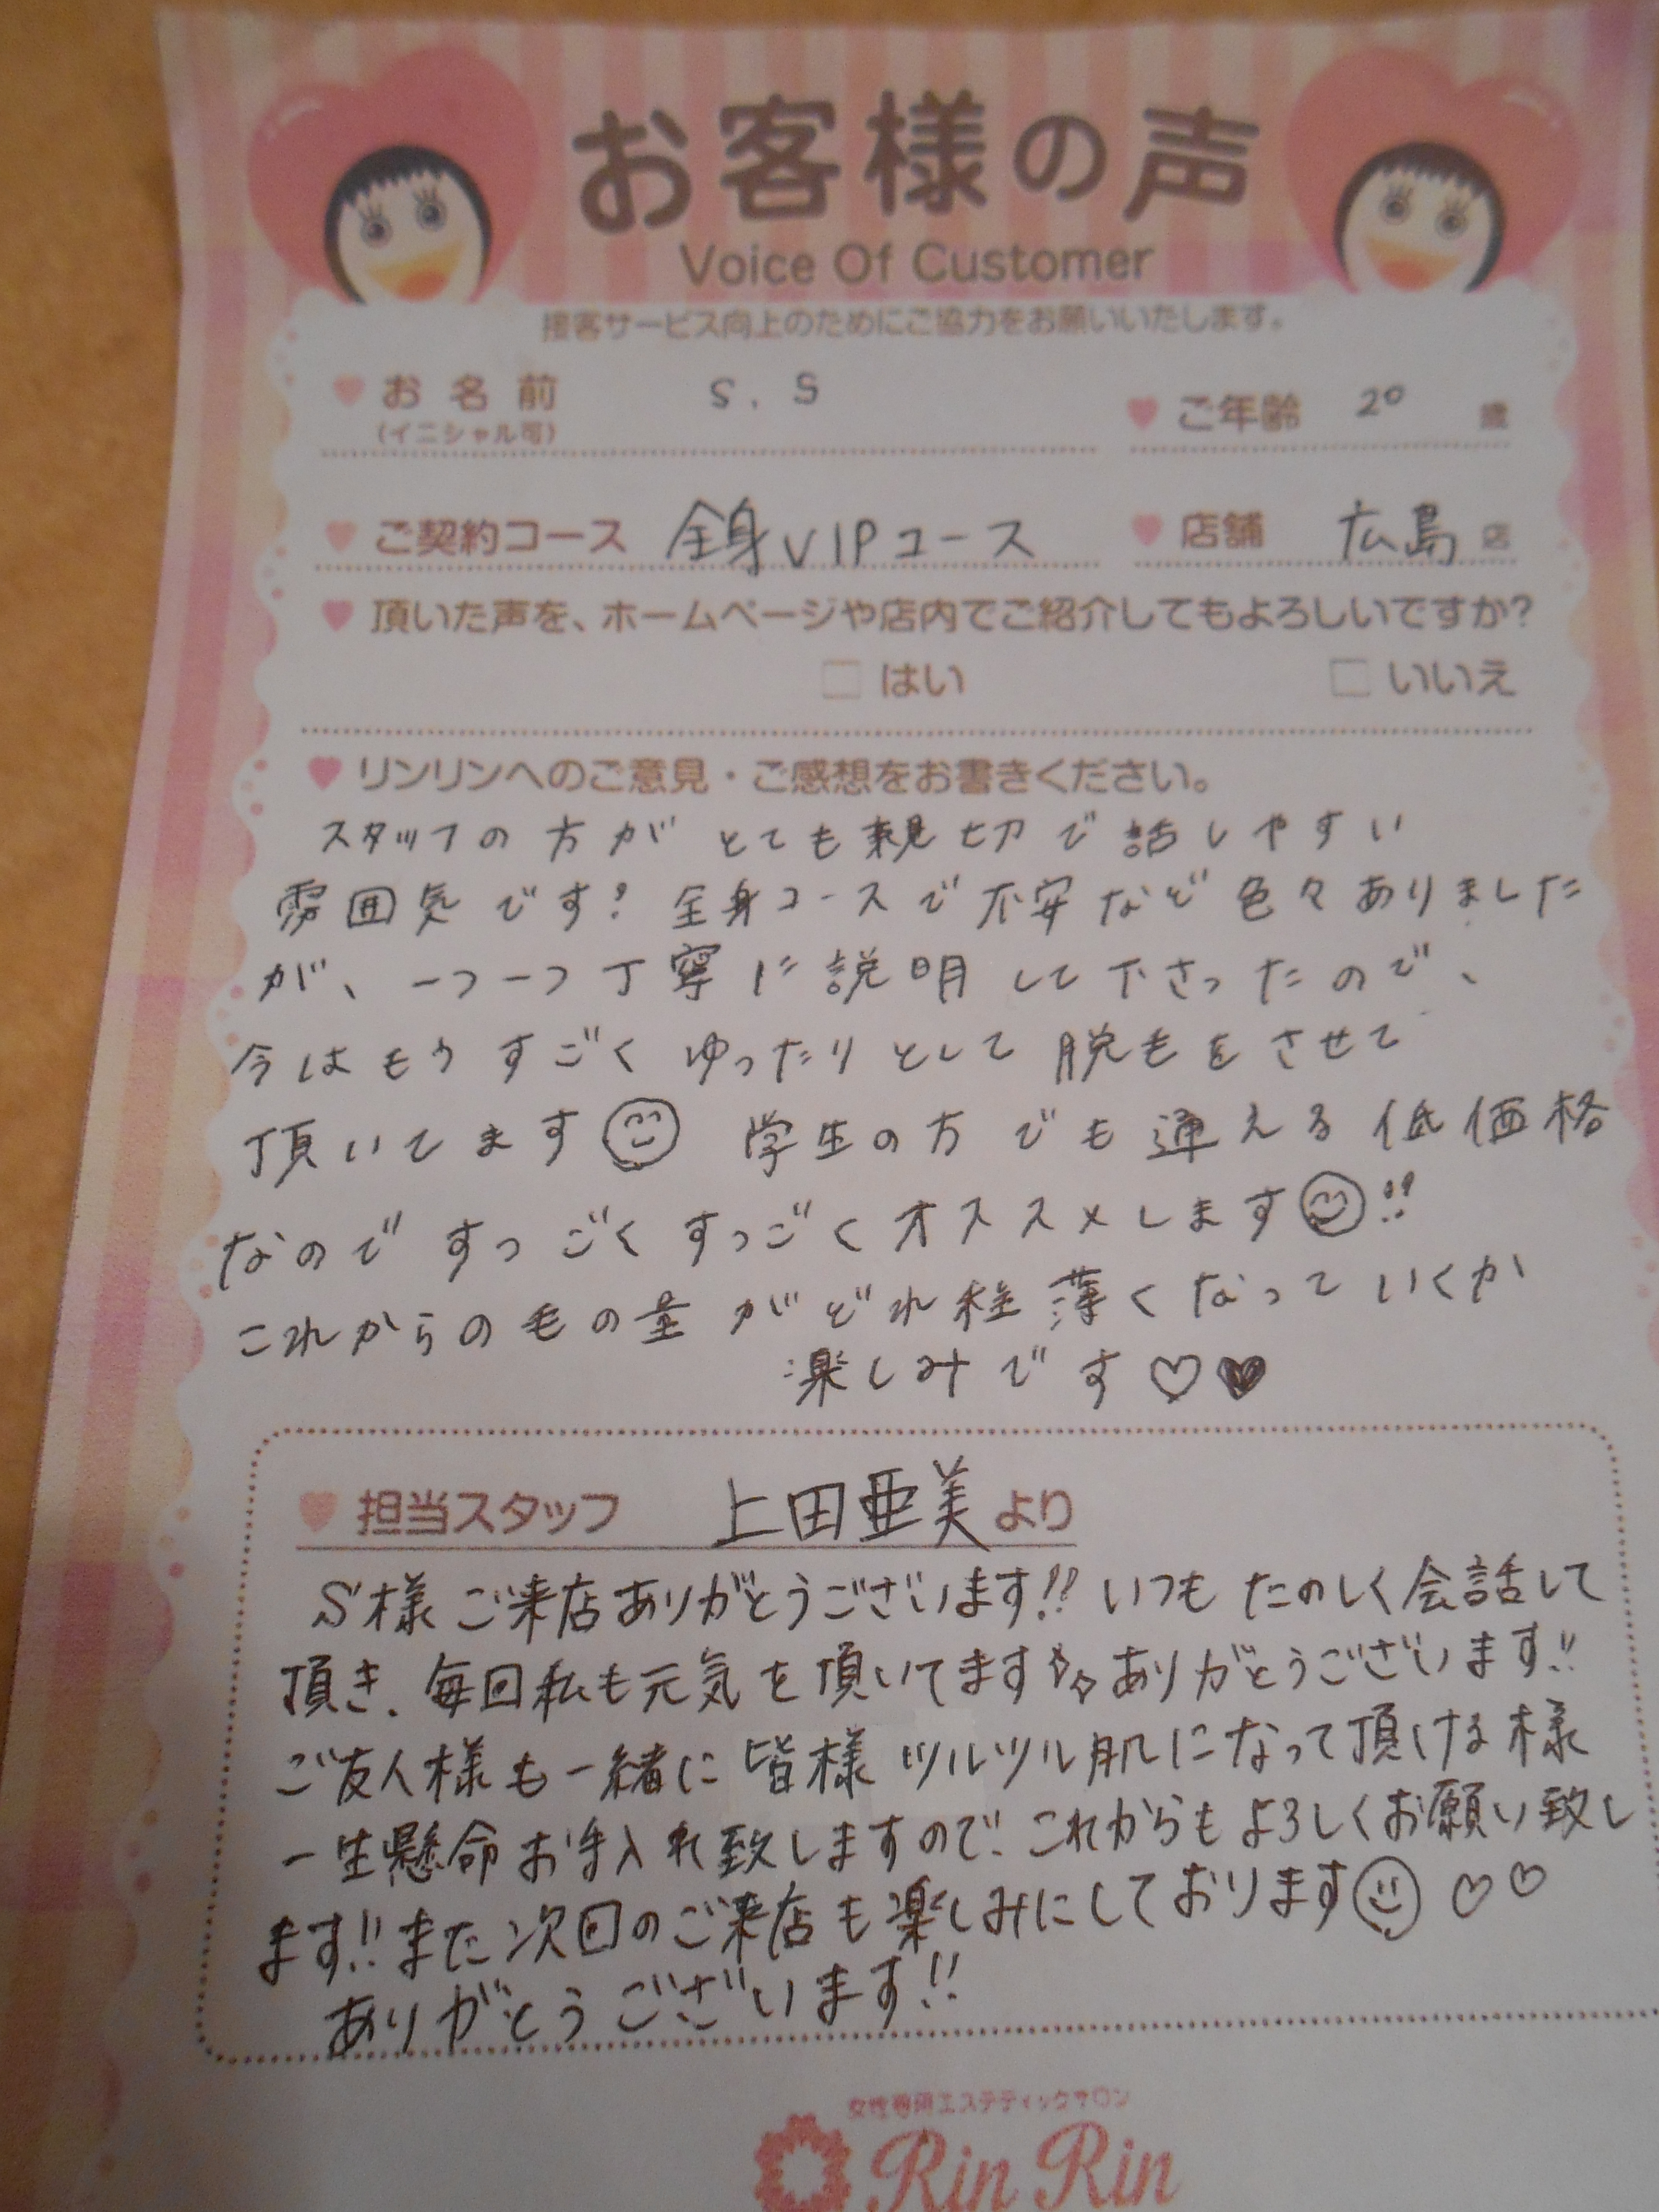 お客様の声
Voice Of Customer
接客サービス向上のためにご協力をお願いいたします。
お名前 S.S
(イニシャル可)
ご年齢 20 歳
ご契約コース 全身VIPコース
店舗 広島 店
頂いた声を、ホームページや店内でご紹介してもよろしいですか?
はい いいえ
リンリンへのご意見・ご感想をお書きください。
スタッフの方がとても親切で話しやすい
雰囲気です! 全身コースで不安など色々ありました
が、一つ一つ丁寧に説明して下さったので、
今はもうすごくゆったりとして脱毛をさせて
頂いてます 学生の方でも通える低価格
なのですっごくすっごくオススメします!!
これからの毛の量がどれ程薄くなっていくか
楽しみです♡♥
担当スタッフ 上田亜美より
S様ご来店ありがとうございます!! いつもたのしく会話して
頂き、毎回私も元気を頂いてます ありがとうございます!!
ご友人様も一緒に皆様ツルツル肌になって頂ける様
一生懸命お手入れ致しますので、これからもよろしくお願い致し
ます!!また次回のご来店も楽しみにしております♡♡
ありがとうございます!!
女性専用エステティックサロン
Rin Rin